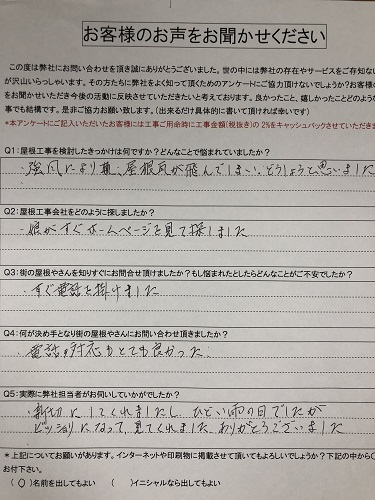 お客様のお声をお聞かせください
この度は弊社にお問い合わせを頂き誠にありがとうございました。世の中には弊社の存在やサービスをご存知ない
が沢山いらっしゃいます。その方たちに弊社をよく知って頂くためのアンケートにご協力頂けないでしょうか?お客様の
をお聞かせいただき今後の活動に反映させていただきたいと考えております。良かったこと、嬉しかったことどのような
事でも結構です。是非ご協力お願い致します。(出来るだけ具体的に書いて頂ければ幸いです)
*本アンケートにご記入いただいたお客様には工事ご用命時に工事金額(税抜き)の2%をキャッシュバックさせていただきま
Q1:屋根工事を検討したきっかけは何ですか?どんなことで悩まれていましたか?
・強風により 屋根瓦が飛んでしまい、どうしようと思いました
Q2:屋根工事会社をどのように探しましたか?
・娘がすぐホームページを見て探しました
Q3:街の屋根やさんを知りすぐにお問合せ頂けましたか?もし悩まれたとしたらどんなことがご不安でしたか?
・すぐ電話を掛けました
Q4:何が決め手となり街の屋根やさんにお問い合わせ頂きましたか?
・電話の対応もとても良かった
Q5:実際に弊社担当者がお伺いしていかがでしたか?
・親切にしてくれましたし、ひどい雨の日でしたが
ビッショリになって、見てくれました ありがとうございました
* 上記についてお願いがあります。インターネットや印刷物に掲載させて頂いてもよろしいでしょうか?下記の中から(
お付下さい。
(○)名前を出してもよい ( )イニシャルなら出してもよい